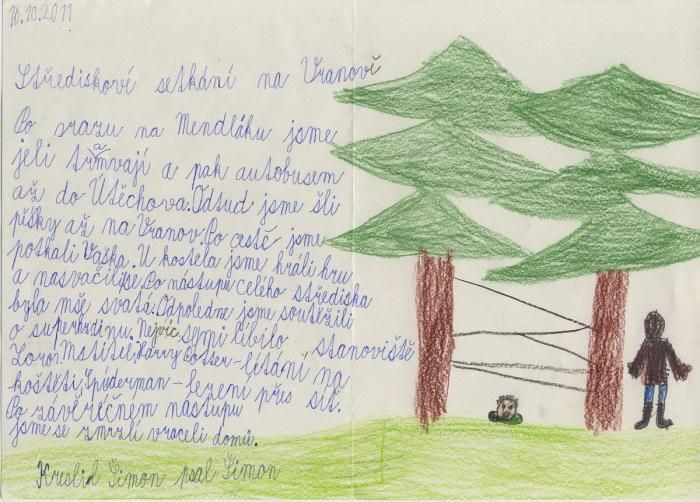 16.10.2011
Střediskové setkání na Vranově
Po srazu na Mendláku jsme
jeli tramvají a pak autobusem
až do Útěchova. Odtud jsme šli
pěšky až na Vranov. Po cestě jsme
potkali Vaška. U kostela jsme hráli hru
a nasvačili se. Po nástupu celého střediska
byla mše svatá. Odpoledne jsme soutěžili
o superhrdinu. Nejvíc se mi líbilo stanoviště
Zoro Mstitel, Harry Potter - lítání na
koštěti, Spiderman - lezení přes síť.
Po závěrečném nástupu
jsme se zmrzlí vraceli domů.
Kreslil Šimon psal Šimon